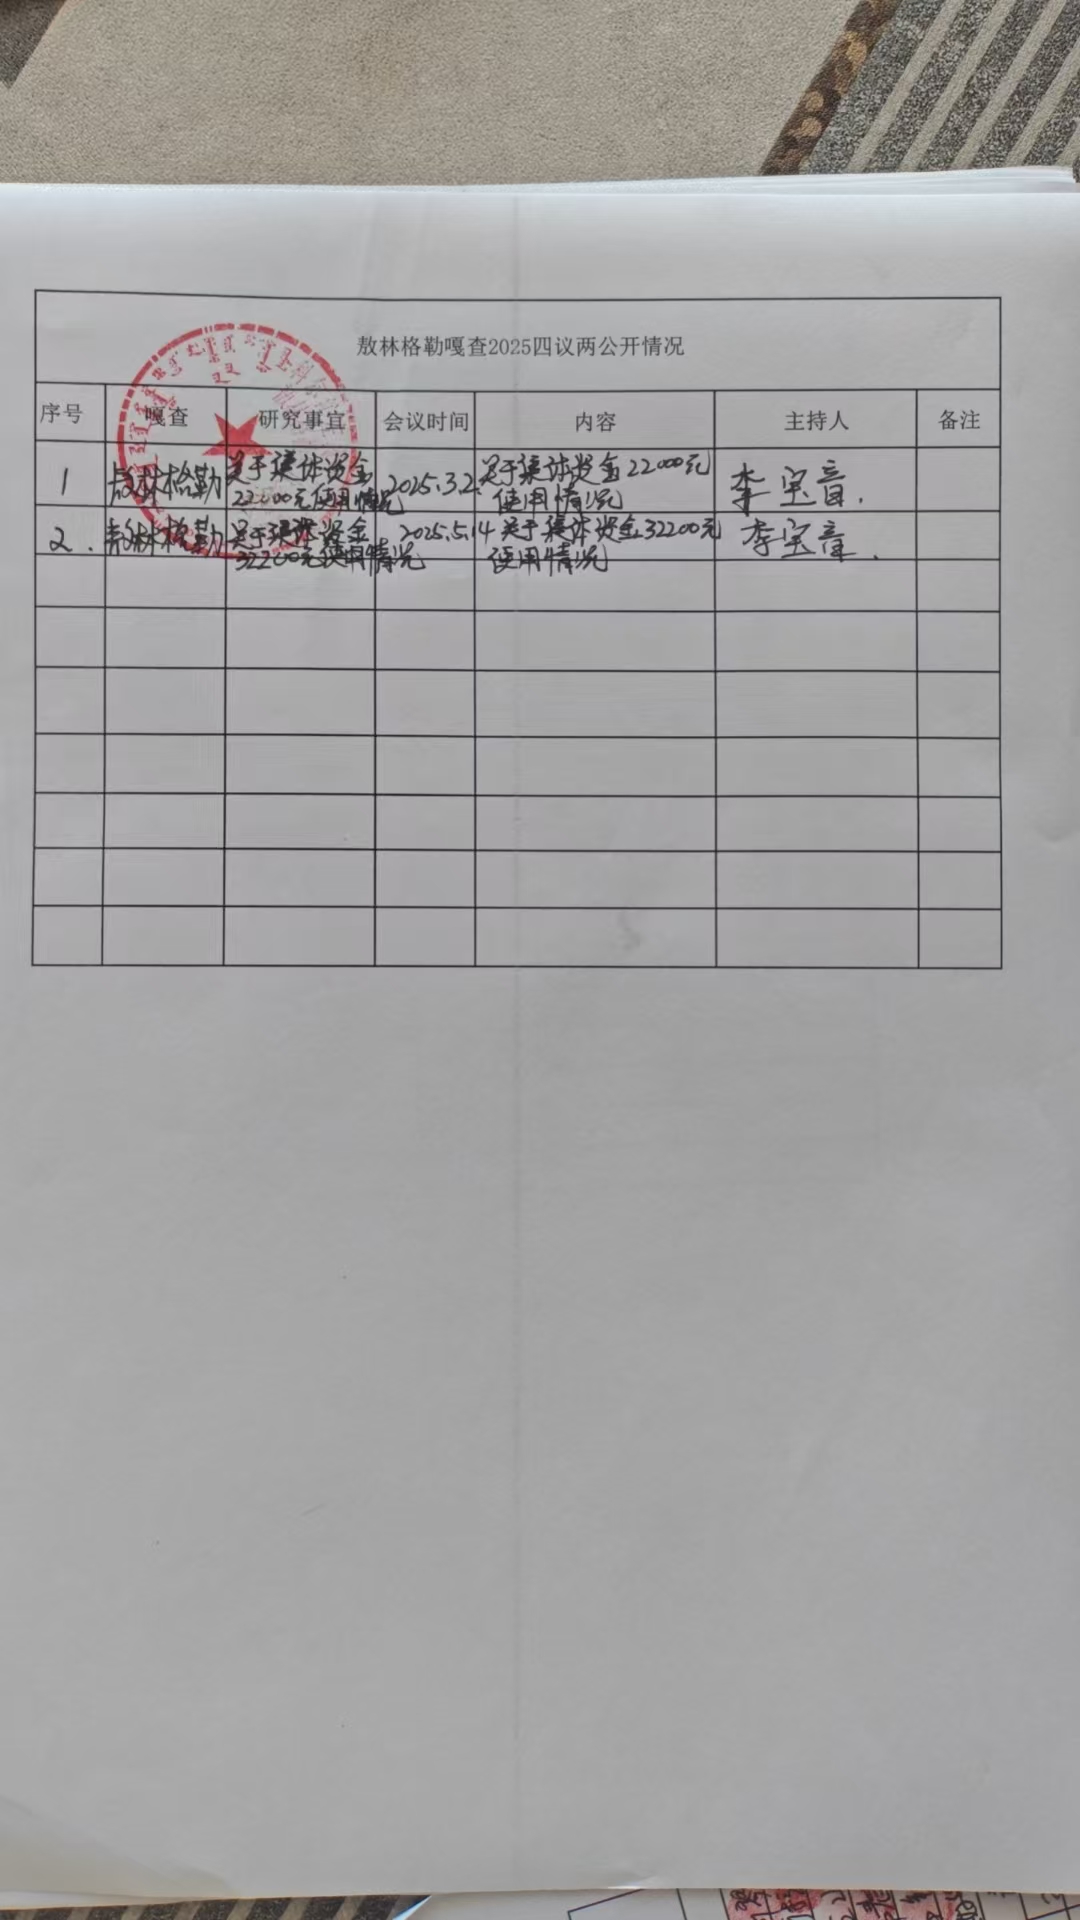 敖林格勒嘎查2025四议两公开情况
序号 嘎查 研究事宜 会议时间 内容 主持人 备注
1 敖林格勒 关于集体资金 2025.3.2. 关于集体资金22000元 李宝音.
22000元使用情况 使用情况
2. 敖林格勒 关于集体资金 2025.5.14 关于集体资金32200元 李宝音.
32200元使用情况 使用情况